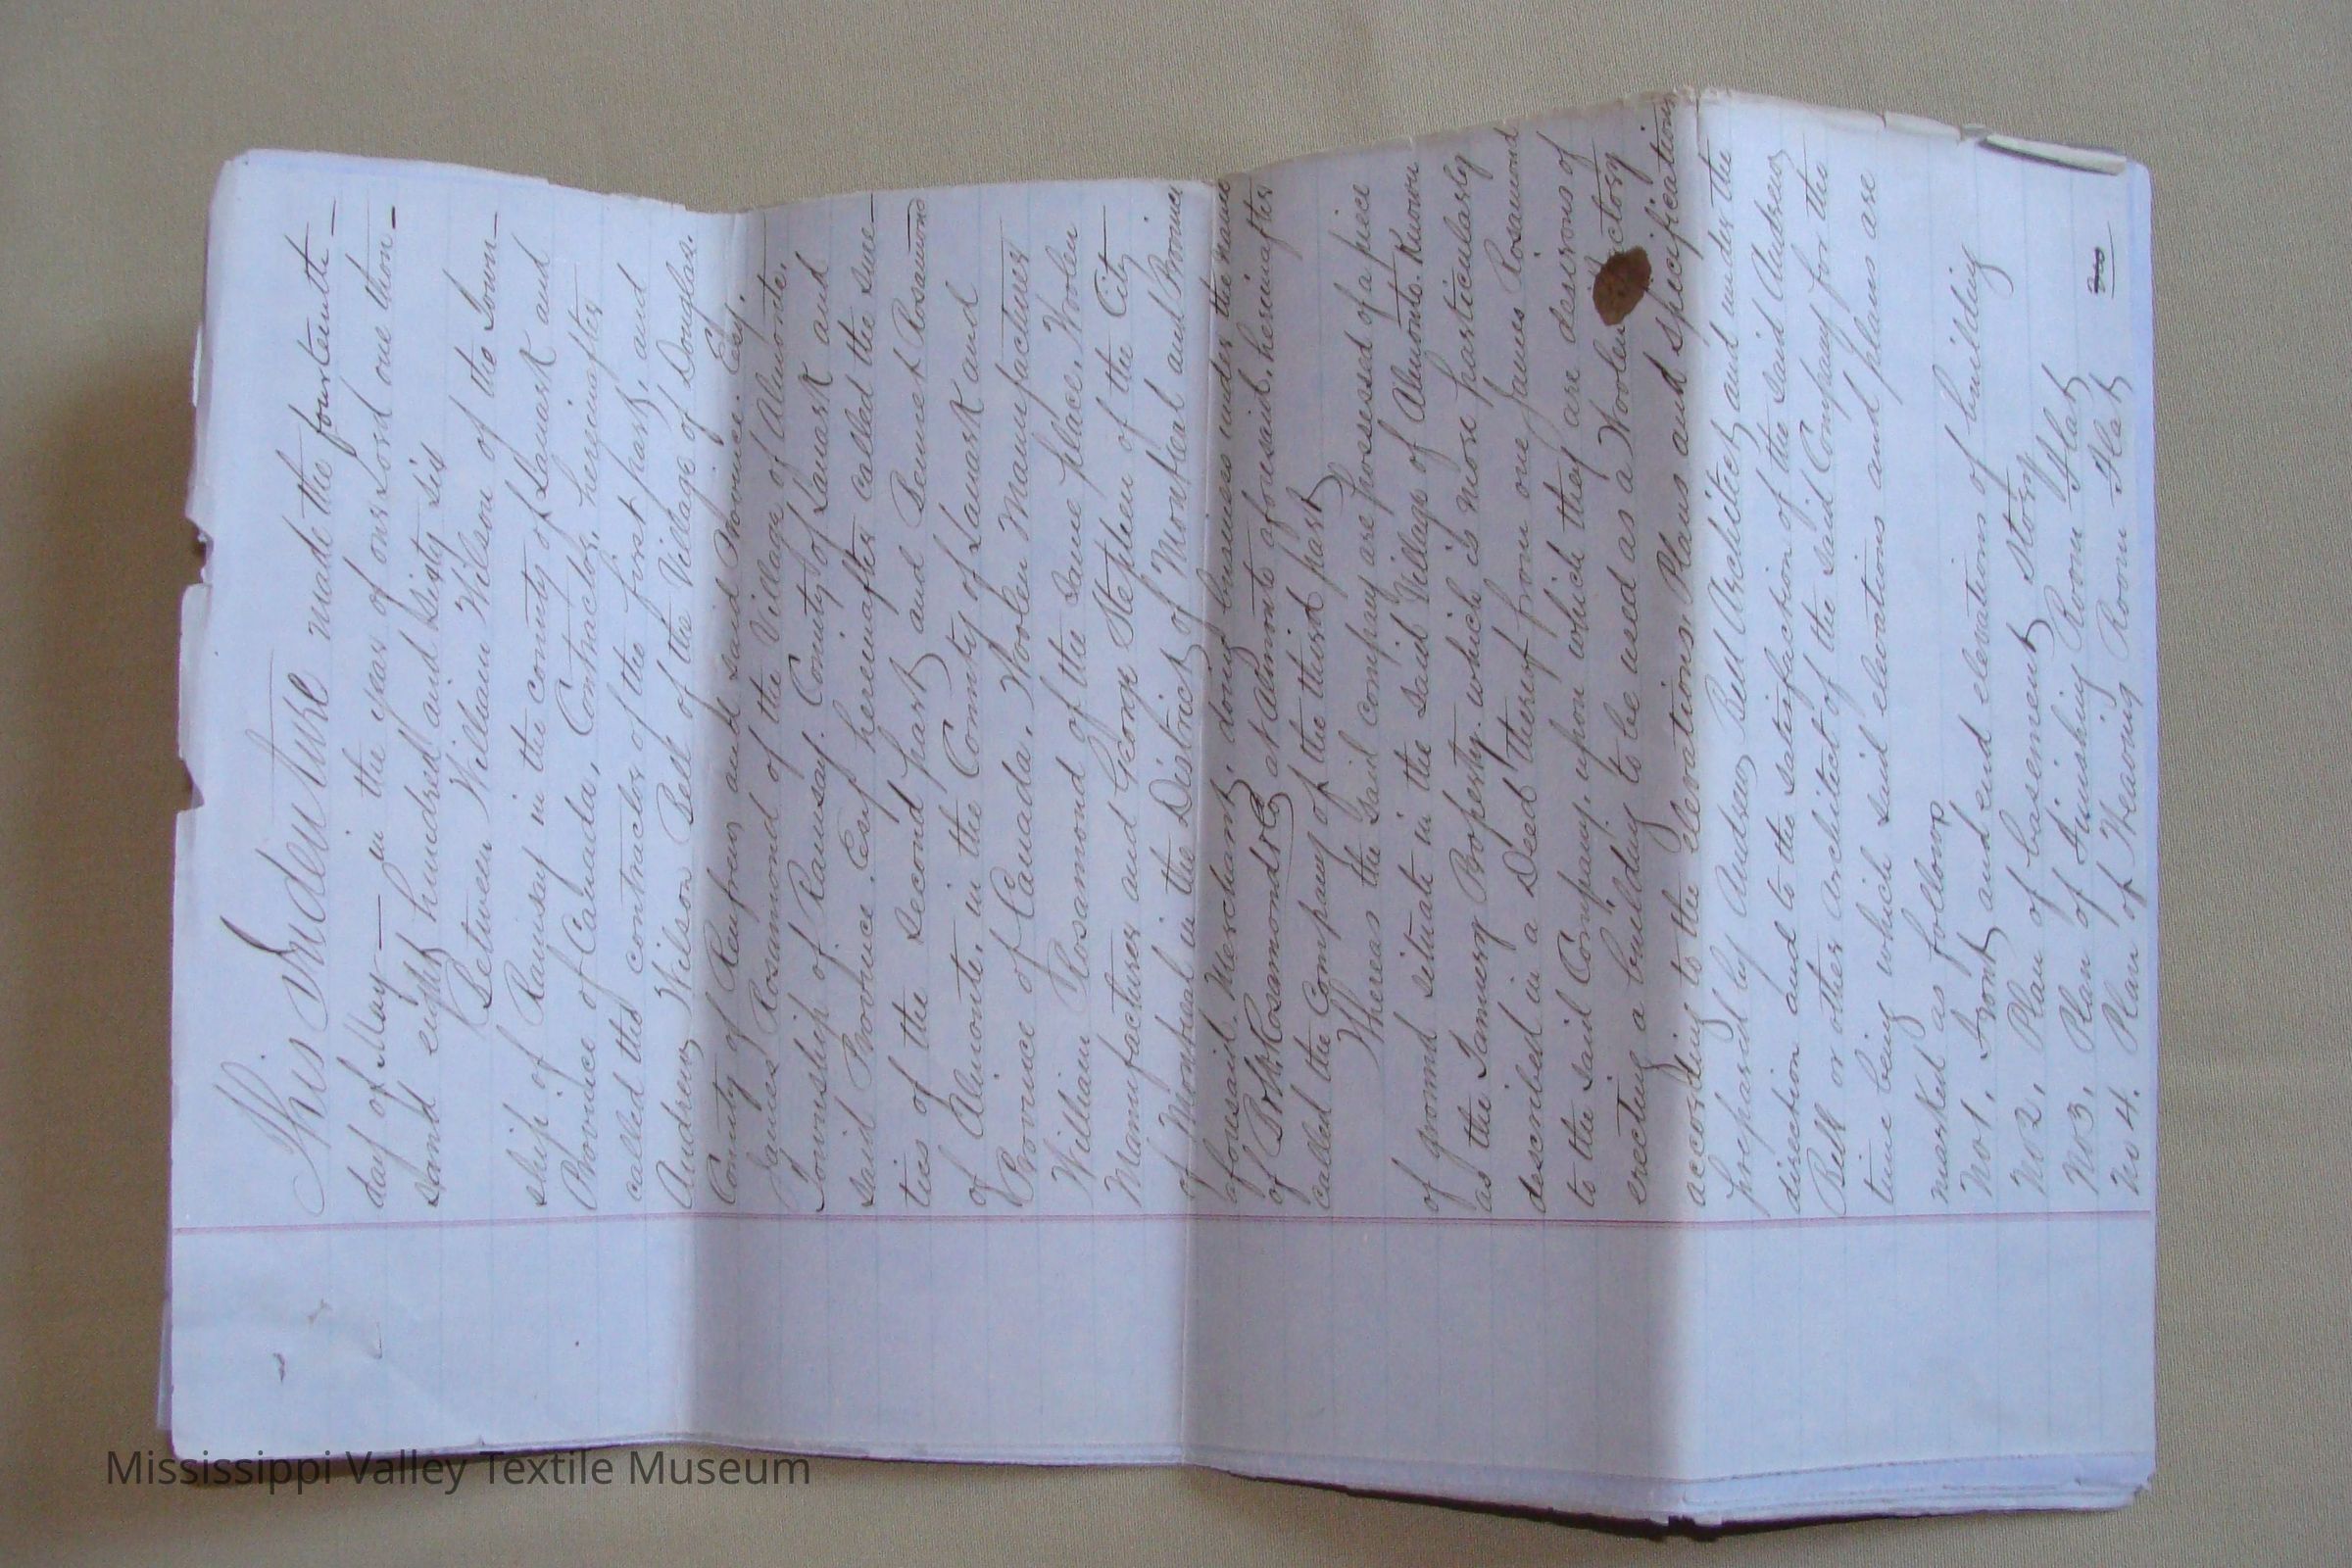 This Indenture made the fourteenth
day of May — in the year of our Lord one thou-
sand eight hundred and sixty six
Between William Wilson of the Town-
ship of Ramsay in the county of Lanark and
Province of Canada, Contractor, hereinafter
called the contractor of the first part, and
Andrew Wilson Bell of the Village of Douglas.
County of Renfrew and said Province. Esq.
James Rosamond of the Village of Almonte,
Township of Ramsay. County of Lanark and
said Province. Esq hereinafter called the sure-
ties of the second part and Bennet Rosamond
of Almonte, in the County of Lanark and
Province of Canada. Woolen Manufacturer
William Rosamond of the same place. Woolen
Manufacturer and George Stephen of the City
of Montreal in the District of Montreal and Province
aforesaid. Merchant, doing business under the name
of B & W Rosamond & Co at Almonte aforesaid, hereinafter
called the Company of the third part
Whereas the said company are possessed of a piece
of ground situate in the said Village of Almonte. Known
as the Tannery Property. which is more particularly
described in a Deed thereof from one James Rosamond
to the said Company, upon which they are desirous of
erecting a building to be used as a Woolen
according to the elevations, Plans and specifications
prepared by Andrew Bell Architect, and under the
direction and to the satisfaction of the said Andrew
Bell or other Architect of the said Company for the
time being which said elevations and plans are
marked as follows
No 1. Front and end elevations of building
No 2. Plan of basement story
No 3. Plan of Finishing Room Flat
No 4. Plan of Weaving Room Flat
Mississippi Valley Textile Museum